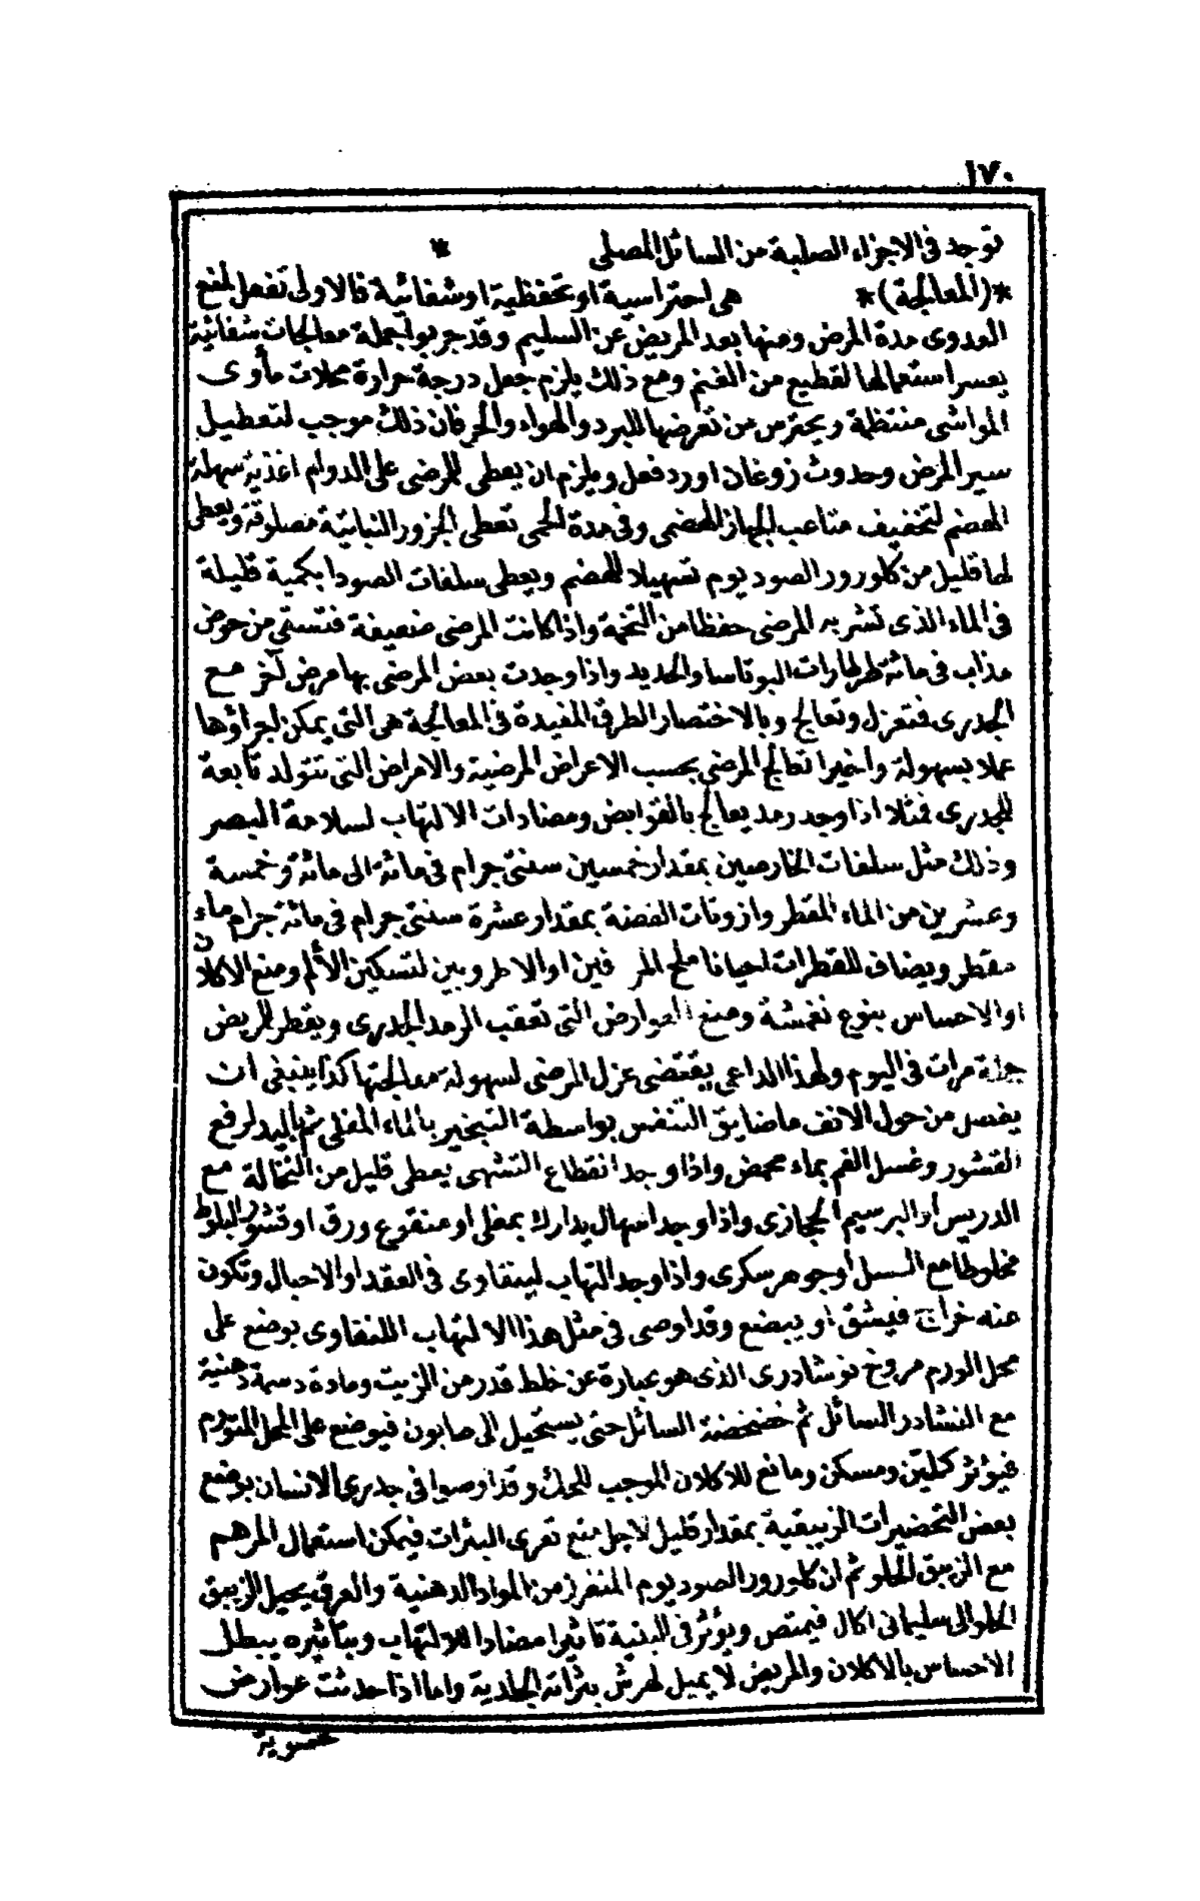 ١٧٠
توجد فى الاجزاء الصلبة من السائل المصلى *
*(المعالجة)* هى احتراسية او تحفظية او شفائية فالاولى تفعل لمنع
العدوى مدة المرض ومنها بعد المريض عن السليم وقد جربوا جملة معالجات شفائية
يعسر استعمالها لقطيع من الغنم ومع ذلك يلزم جعل درجة حرارة محلات مأوى
المواشى منتظمة ويحترس من تعرضها للبرد والهواء والحر فان ذلك موجب لتعطيل
سير المرض وحدوث زوغان اورد فعل ويلزم ان يعطى للمرضى على الدوام اغذية سهلة
الهضم لتخفيف متاعب الجهاز الهضمى وفى مدة الحمى تعطى الجزور النباتية مصلوقة ويعطى
لها قليل من كلورور الصوديوم تسهيلا للهضم ويعطى سلفات الصودا بكمية قليلة
فى الماء الذى تشربه المرضى حفظا من التخمة واذا كانت المرضى ضعيفة فتستقى من حوض
مذاب فى مائه طرطرات البوتاسا والحديد واذا وجدت بعض المرضى بها مرض آخر مع
الجدرى فتعزل وتعالج وبالاختصار الطرق المفيدة فى المعالجة هى التى يمكن اجراؤها
عملا بسهولة واخيرا تعالج المرضى بحسب الاعراض المرضية والامراض التى تتولد تابعة
للجدرى فمثلا اذا وجد رمد يعالج بالقوابض ومضادات الالتهاب لسلامة البصر
وذلك مثل سلفات الخارصين بمقدار خمسين سنتى جرام فى مائة الى مائة وخمسة
وعشرين من الماء المقطر وازوتات الفضة بمقدار عشرة سنتى جرام فى مائة جرام ماء
مقطر ويضاف للقطرات احيانا ملح المرفين او الاطروبين لتسكين الألم ومنع الاكلان
او الاحساس بنوع نغمشة ومنع العوارض التى تعقب الرمد الجدرى ويقطر للمريض
جملة مرات فى اليوم ولهذا الداعى يقتضى عزل المرضى لسهولة معالجتها كذا ينبغى ان
يفصل من حول الانف ما ضايق التنفس بواسطة التبخير بالماء المغلى ثم باليد لرفع
القشور وغسل الفم بماء محمض واذا وجد انقطاع التشهى يعطى قليل من النخالة مع
الدريس أو البرسيم الحجازى واذا وجد اسهال يدارك بمغلى او منقوع ورق او قشور البلوط
مخلوطا مع العسل أو جوهر سكرى واذا وجد التهاب لينفاوى فى العقد او الاحبال وتكون
عنه خراج فيشق او يبضع وقد اوصى فى مثل هذا الالتهاب اللنفاوى بوضع على
محل الورم مروخ نوشادرى الذى هو عبارة عن خلط قدر من الزيت ومادة دسمة دهنية
مع النشادر السائل ثم خضخضة السائل حتى يستحيل الى صابون فيوضع على المحل المتورم
فيؤثر كملين ومسكن ومانع للاكلان الموجب للحك وقد اوصوا فى جدرى الانسان بوضع
بعض التحضيرات الزيبقية بمقدار قليل لاجل منع تعرى البثرات فيمكن استعمال المرهم
مع الزيبق الحلو ثم ان كلورور الصوديوم المنفرز من المواد الدهنية والعرق يحيل الزيبق
الحلو الى سليمانى اكال فيمتص ويؤثر فى البنية تاثيرا مضادا للالتهاب وبتاثيره يبطل
الاحساس بالاكلان والمريض لا يميل لهرش بثراته الجلدية واما اذا حدثت عوارض